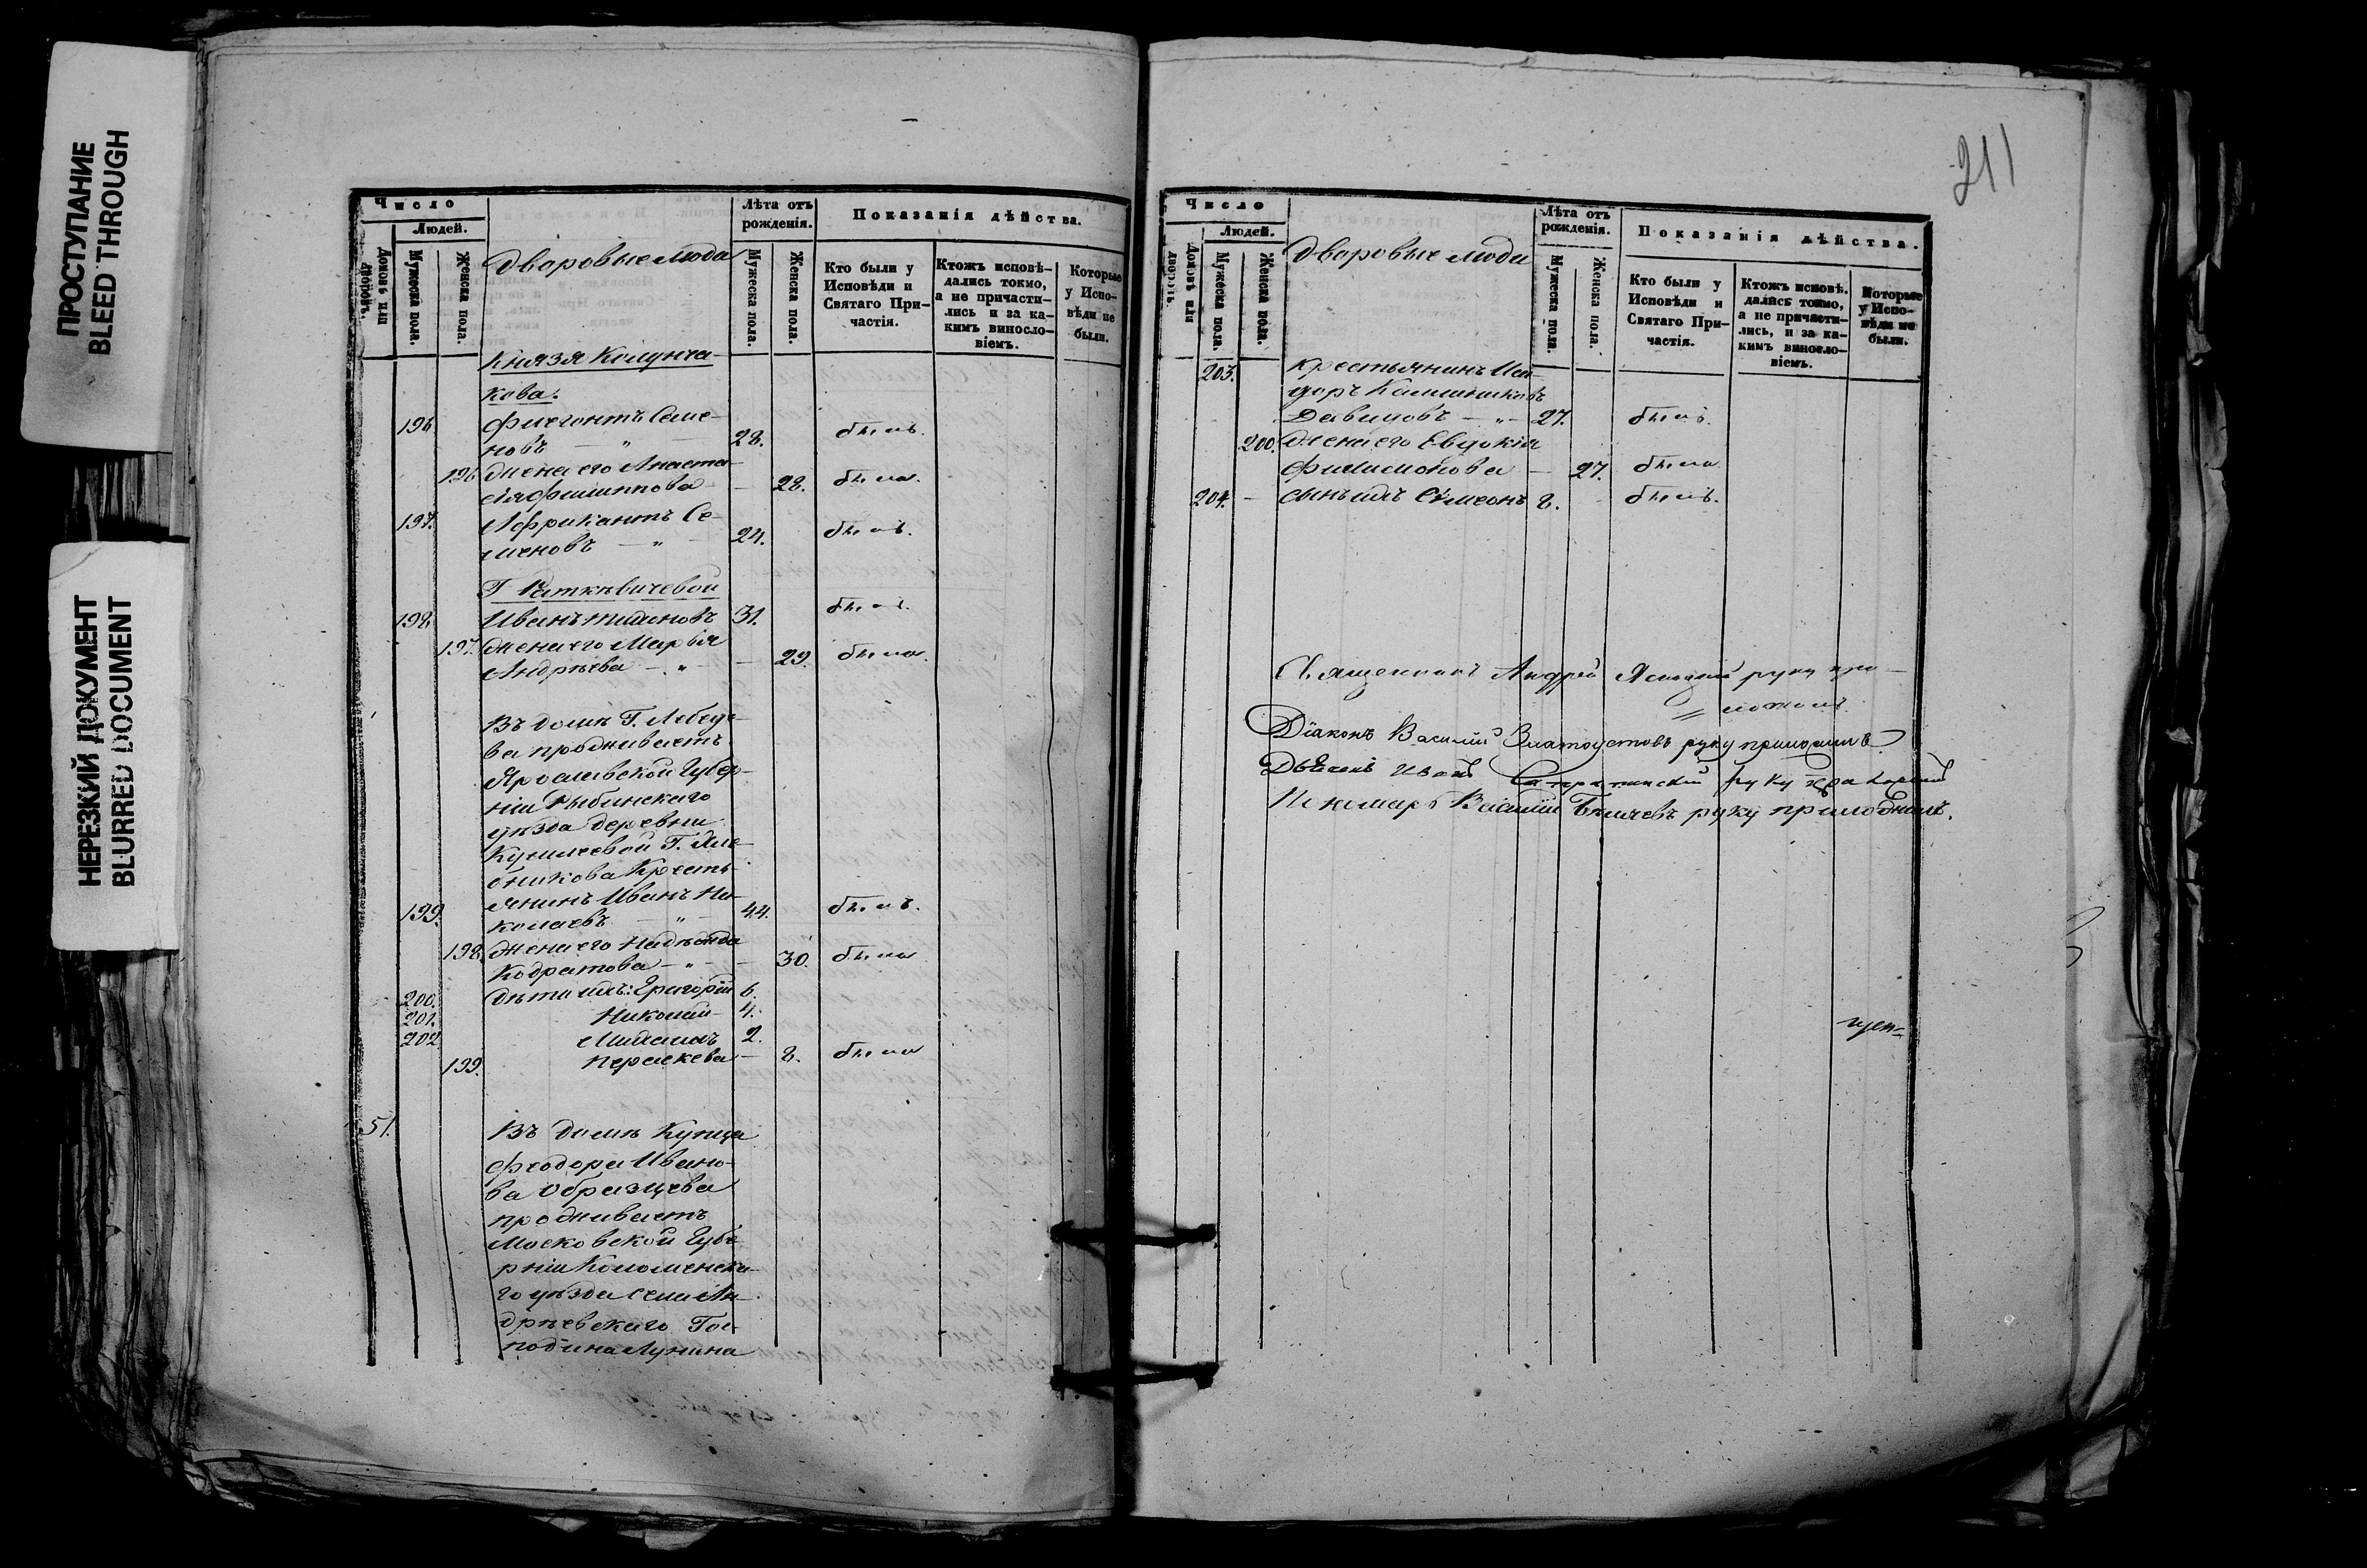 ПРОСТУПАНИЕ
BLEED THROUGH
НЕРЕЗКИЙ ДОКУМЕНТ
BLURRED DOCUMENT
Число
Людей.
Домовъ или дворовъ.
Мужеска пола.
Женска пола.
Дворовые люди
Лѣта отъ рожденія.
Мужеска пола.
Женска пола.
Показанія дѣйства.
Кто были у Исповѣди и Святаго Причастія.
Ктожъ исповѣдались токмо, а не причастились и за какимъ винословіемъ.
Которые у Исповѣди не были.
Князя
кова.
196. Флегонтъ Семе-
новъ — „ — 28. былъ.
196. Жена его Анаста-
сія Филиппова — 28. была.
197. Африкантъ Се-
меновъ — „ — 24. былъ.
Г.
198. Иванъ 31. былъ.
197. Жена его Марѳа
Андрѣева — „ — 29. была.
Въ домѣ Г. Лебеде-
ва проживаетъ
Ярославской Губер-
ніи Рыбинскаго
уѣзда деревни
Г.
Кресть-
199. янинъ Иванъ Ни-
колаевъ — „ — 44. былъ.
198. Жена его Надѣжда
Кодратова — „ — 30. была
200. Дѣти ихъ: Григорій 6.
201. Николай — 4.
202. Михаилъ 2.
199. Параскева — 8. была
51. Въ домѣ Купца
Феодора Ивано-
ва Образцева
проживаетъ
Московской Губе-
рніи Коломенска-
го уѣзда села Ан-
дрѣевскаго Гос-
подина Лунина
211
Число
Людей.
Домовъ или дворовъ.
Мужеска пола.
Женска пола.
Дворовые люди
Лѣта отъ рожденія.
Мужеска пола.
Женска пола.
Показанія дѣйства.
Кто были у Исповѣди и Святаго Причастія.
Ктожъ исповѣдались токмо, а не причастились, и за какимъ винословіемъ.
Которые у Исповѣди не были.
203. Крестьянинъ Иси-
доръ Калашниковъ
Давидовъ — „ — 27. былъ.
200. Жена его Евдокія
Филимонова — 27. была
204. — Сынъ ихъ Симеонъ 8. былъ.
Священникъ Андрей руку при-
ложилъ.
Діаконъ Василій Златоустовъ руку приложилъ
Дьячекъ Иванъ руку приложилъ
Пономарь Василій руку приложилъ.